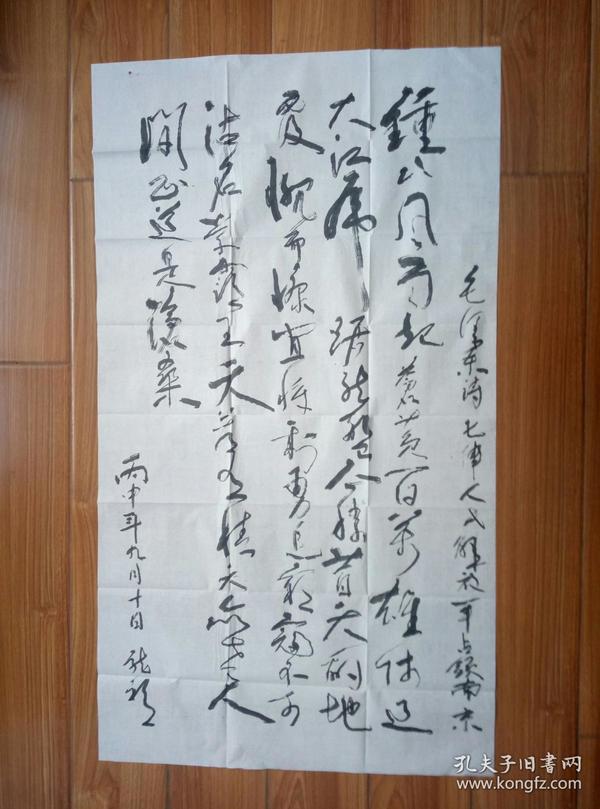 毛泽东诗 七律 人民解放军占领南京
钟山风雨起苍黄百万雄师过
大江虎踞龙盘今胜昔天翻地
覆慨而慷宜将剩勇追穷寇不可
沽名学霸王天若有情天亦老人
间正道是沧桑
丙申年九月十日
孔夫子旧书网
www.kongfz.com